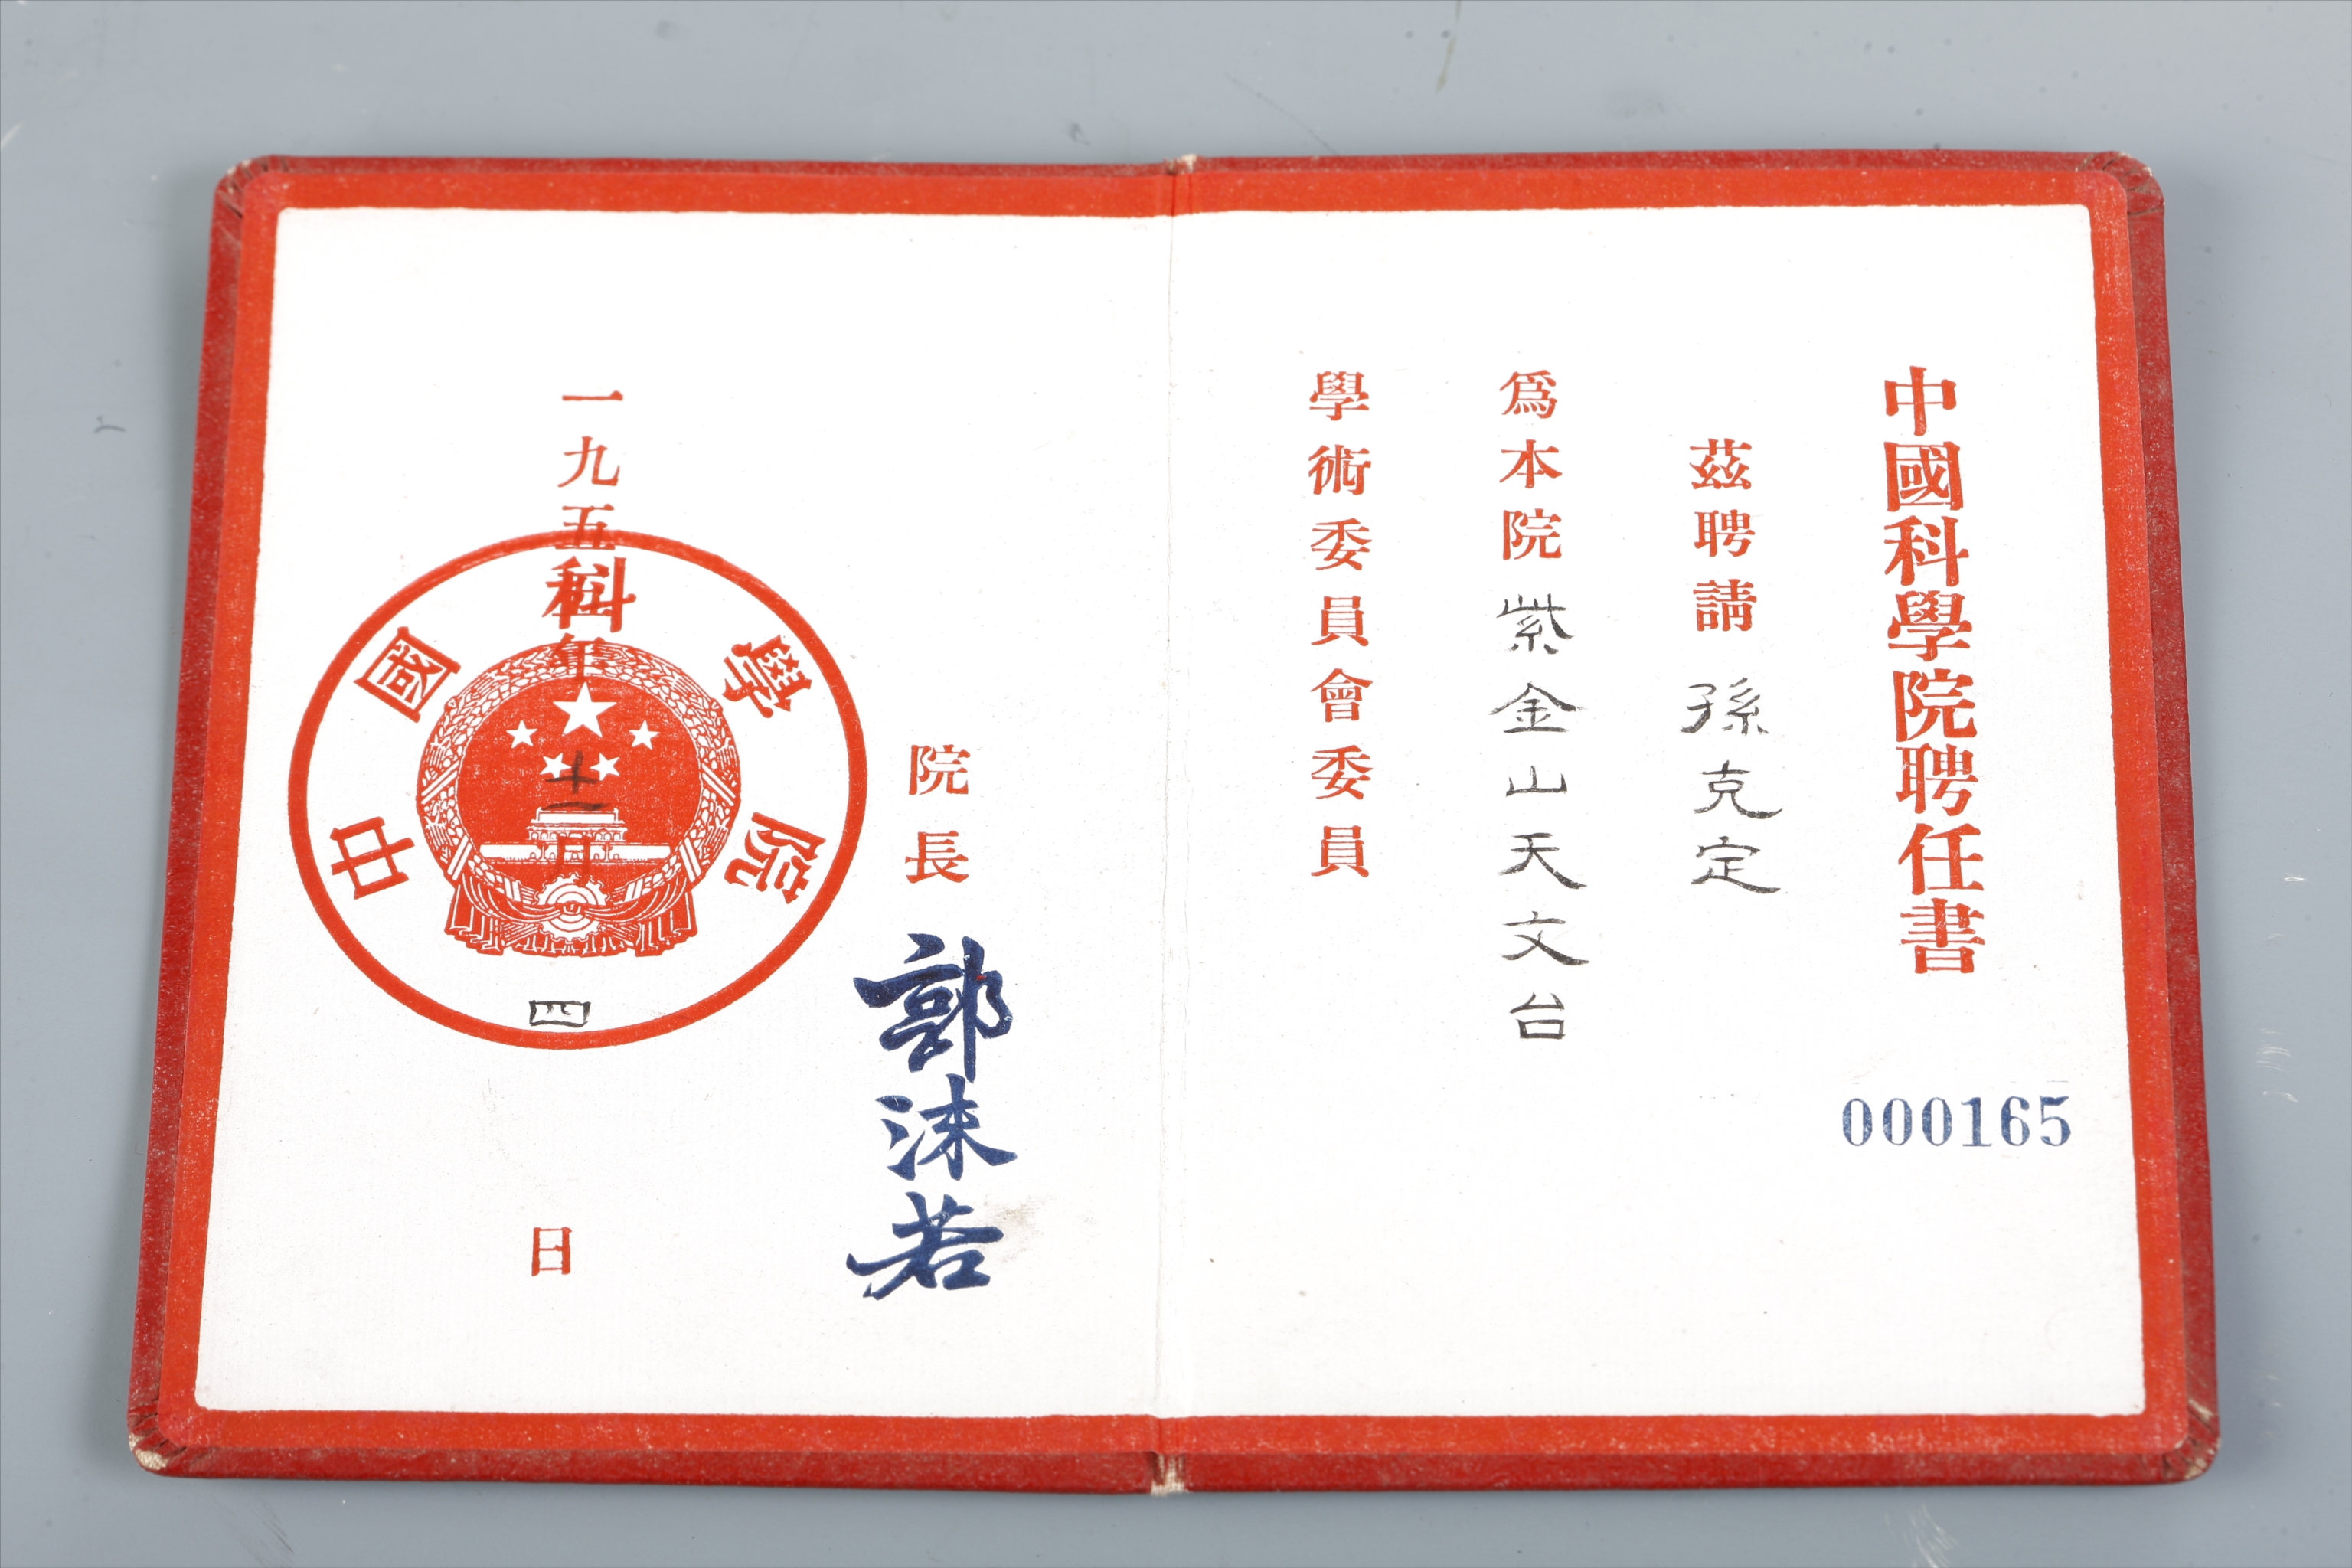 中國科學院聘任書
000165
茲聘請孫克定
為本院紫金山天文台
學術委員會委員
院長郭沫若
一九五 年十一月四日
中國科學院